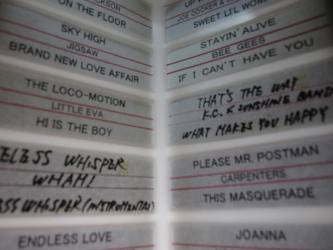 ON THE FLOOR
SKY HIGH
JIGSAW
BRAND NEW LOVE AFFAIR
THE LOCO-MOTION
LITTLE EVA
HI IS THE BOY
ELESS WHISPER
WHAM!
ESS WHISPER (INSTRUMENTAL)
ENDLESS LOVE
JOE COCKER &
SWEET LIL WOM
STAYIN' ALIVE
BEE GEES
IF I CAN'T HAVE YOU
THAT'S THE WAY
K.C. & SUNSHINE BAND
WHAT MAKES YOU HAPPY
PLEASE MR. POSTMAN
CARPENTERS
THIS MASQUERADE
JOANNA